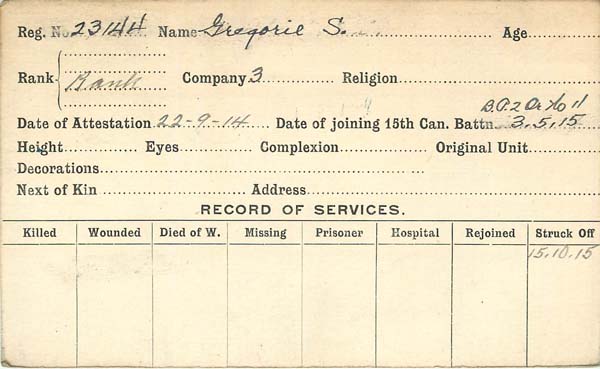 Reg. No. 23144 Name Gregorie S. Age
Rank Rank Company 3 Religion
B.P2 Or No 11
Date of Attestation 22-9-14 Date of joining 15th Can. Battn. 3.5.15
Height Eyes Complexion Original Unit
Decorations
Next of Kin Address
RECORD OF SERVICES.
Killed Wounded Died of W. Missing Prisoner Hospital Rejoined Struck Off
15.10.15